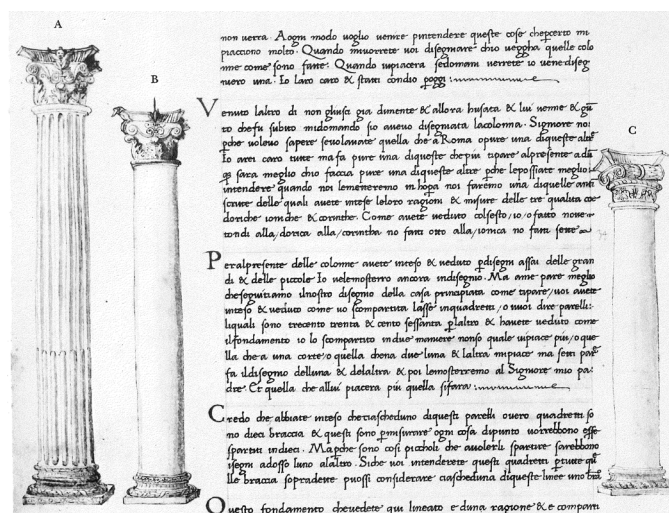 A
B
C
non verra. A ogni modo voglio venire pintendere queste cose chepcerto mi
piacciono molto. Quando mivorrete voi disegniare chio veggha quelle colo
nne come sono fatte. Quando vipiacera sedomani verrete io vene diseg
nero una. Io laro caro & stati condio poggi:
Venuto laltro di non giunsi gia dimente & allora husata & lui venne & gu
to chefu subito midomando sio avevo disegniata lacolonna. Signore no:
pche volevo sapere sevolavate quella che a Roma opure una diqueste altre
Io arei caro tutte ma fa pure una diqueste chepiu tipare alpresente
sara meglio chio faccia pure una diqueste altre pche lepossiate meglio
intendere quando noi lemetteremo in hopa noi faremo una diquelle anti
scritte delle quali avete inteso leloro ragioni & misure delle tre qualita
doriche ioniche & corinthe. Come avete veduto colsesto/io/o fatto nove
tondi alla/dorica alla/corintha no fatti otto alla/ionica no fatti sette
Peralpresente delle colonne avete inteso & veduto pdisegni assai delle gran
di & delle piccole Io velemosterro ancora indisegno. Ma ame pare meglio
cheseguitiamo ilnostro disegno della casa principiata come tipare/voi avete
inteso & veduto come vo scompartita lasse inquadretti/o vuoi dire parelli:
liquali sono trecento trenta & cento sessanta plaltro & havete veduto come
ilfondamento io lo scompartito indue maniere nonso quale vipiace piu/o que
lla che a una corte/o quella chena due luna & laltra mipiace ma setti pare
fa ildisegno delluna & delaltra & poi lemosterremo al Signore mio pa
dre. Et quella che allui piacera piu quella sifara:
Credo che abbiate inteso checiascheduno diquesti parelli overo quadretti so
no dieci braccia & questi sono pmisurare ogni cosa dipunto vorrebbono esse
spartiti indieci. Mapche sono cosi picholi che avolerli spartire sarebbono
isegni adosso luno alaltro. Siche voi intenderete questi quadretti ptutte
lle braccia sopradette puossi considerare ciascheduna diqueste linee uno
Questo fondamento chevedete qui lineato e duna ragione & e comparti